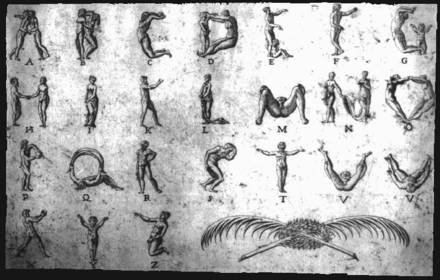 A B C D E F G
H I K L M N O
P Q R S T V V
Z